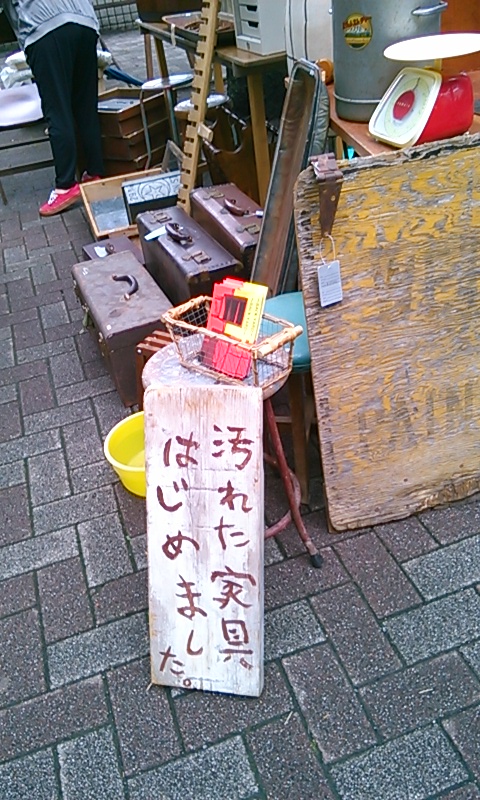 汚れた実具
はじめました。